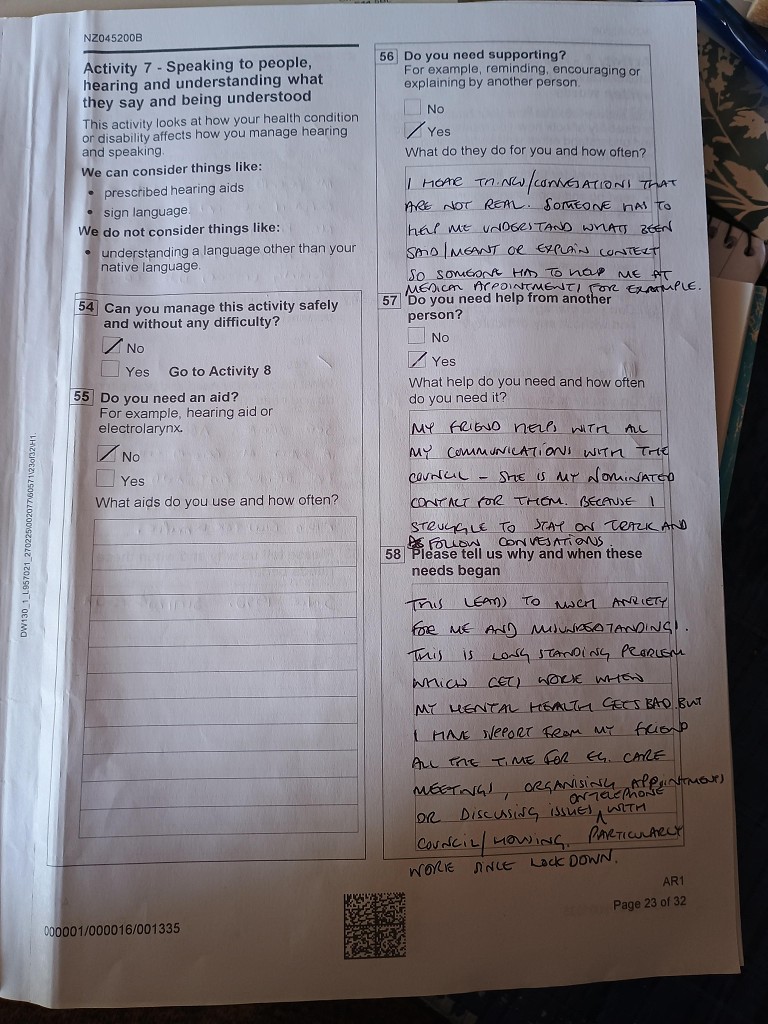 NZ045200B
Activity 7 - Speaking to people,
hearing and understanding what
they say and being understood
This activity looks at how your health condition
or disability affects how you manage hearing
and speaking.
We can consider things like:
• prescribed hearing aids
• sign language.
We do not consider things like:
• understanding a language other than your
native language.
54 Can you manage this activity safely
and without any difficulty?
No
Yes Go to Activity 8
55 Do you need an aid?
For example, hearing aid or
electrolarynx.
No
Yes
What aids do you use and how often?
56 Do you need supporting?
For example, reminding, encouraging or
explaining by another person.
No
Yes
What do they do for you and how often?
I HEAR THINGS/CONVESATIONS THAT
ARE NOT REAL. SOMEONE HAS TO
HELP ME UNDERSTAND WHATS BEEN
SAID/MEANT OR EXPLAIN CONTEXT
SO SOMEONE HAS TO HELP ME AT
MEDICAL APPOINTMENTS FOR EXAMPLE.
57 Do you need help from another
person?
No
Yes
What help do you need and how often
do you need it?
MY FRIEND HELPS WITH ALL
MY COMMUNICATIONS WITH THE
COUNCIL – SHE IS MY NOMINATED
CONTACT FOR THEM. BECAUSE I
STRUGGLE TO STAY ON TRACK AND
FOLLOW CONVESATIONS.
58 Please tell us why and when these
needs began
THIS LEADS TO MUCH ANXIETY
FOR ME AND MISUNDERSTANDINGS.
THIS IS LONG STANDING PROBLEM
WHICH GETS WORSE WHEN
MY MENTAL HEALTH GETS BAD. BUT
I HAVE SUPPORT FROM MY FRIEND
ALL THE TIME FOR EG. CARE
MEETINGS, ORGANISING APPOINTMENTS
ON TELEPHONE
OR DISCUSSING ISSUES WITH
COUNCIL/HOUSING. PARTICULARLY
WORSE SINCE LOCKDOWN.
DW130_1_L957021_270225\002077\60571\23of32\H1
AR1
Page 23 of 32
000001/000016/001335